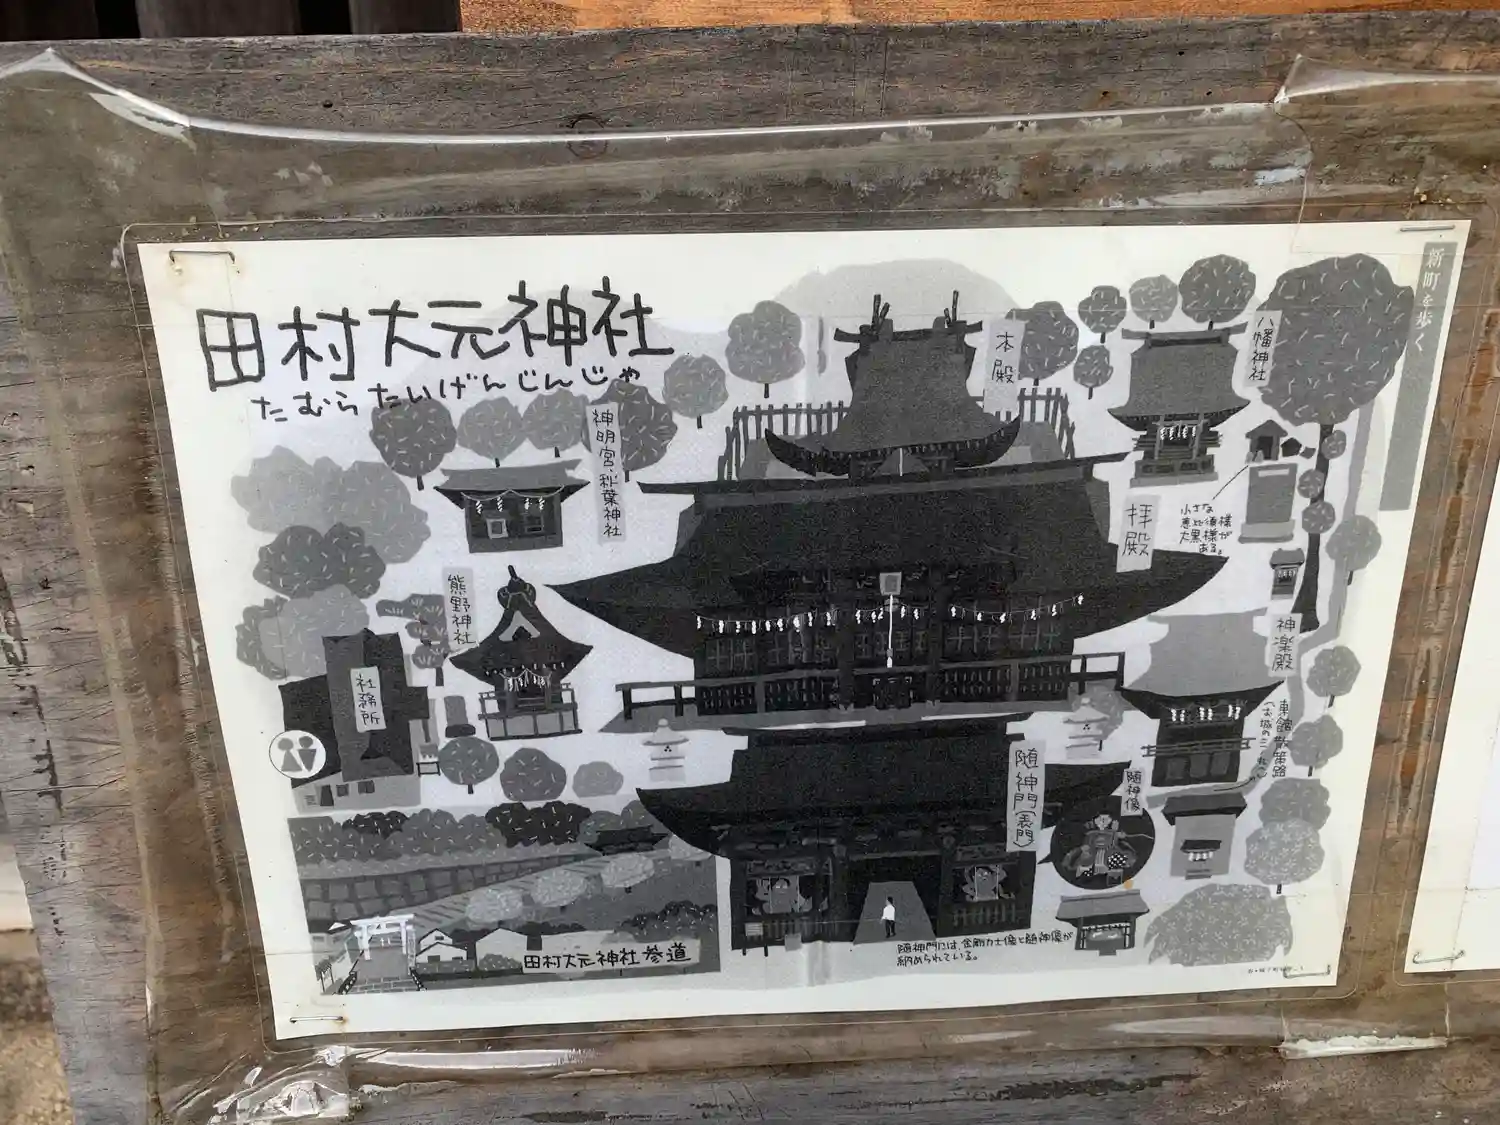 新町を歩く
田村大元神社
たむらたいげんじんじゃ
本殿
八幡神社
神明宮・秋葉神社
拝殿
小さな
恵比須様
大黒様が
ある。
熊野神社
神楽殿
社務所
東館散策路
(お城の三ノ丸)
随神門(表門)
随神像
田村大元神社参道
随神門には、金剛力士像と随神像が
納められている。